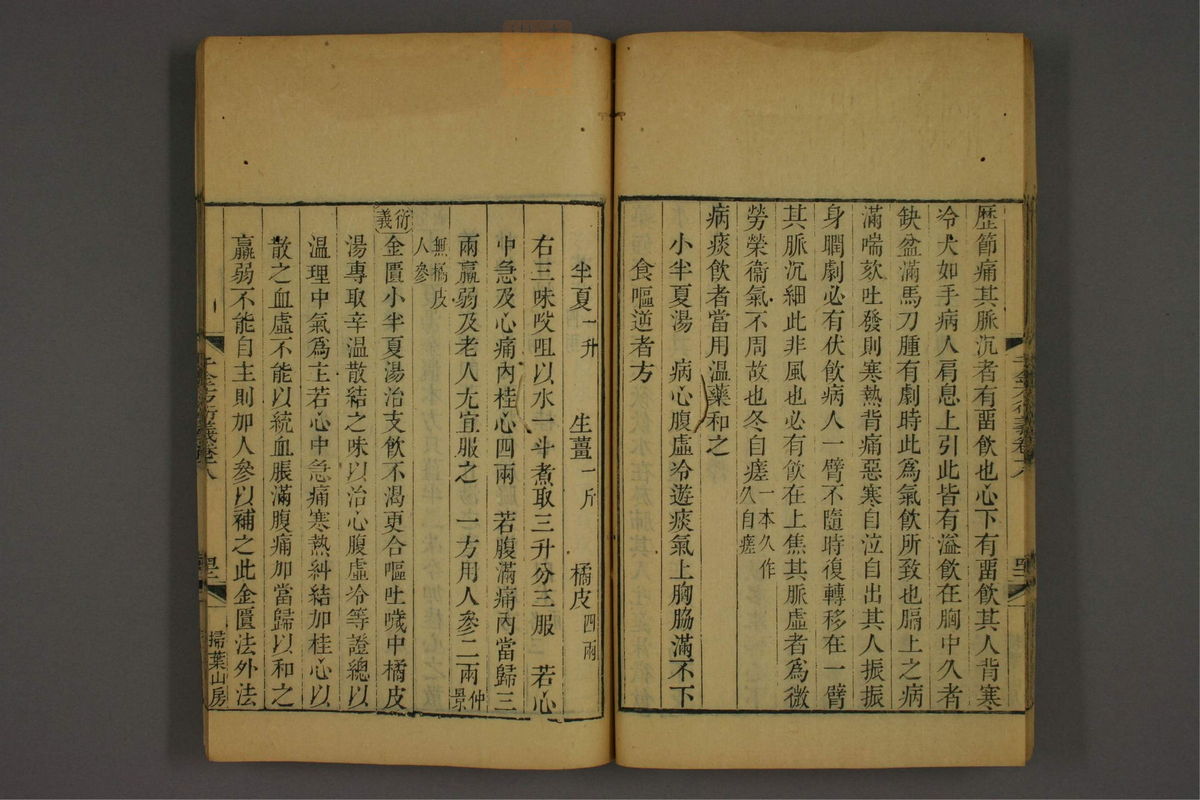 歷節痛其脈沉者有畱飲也心下有畱飲其人背寒
冷大如手病人肩息上引此皆有溢飲在胸中久者
缺盆滿馬刀腫有劇時此爲氣飲所致也膈上之病
滿喘欬吐發則寒熱背痛惡寒自泣自出其人振振
身瞤劇必有伏飲病人一臂不隨時復轉移在一臂
其脈沉細此非風也必有飲在上焦其脈虛者爲微
勞榮衞氣不周故也冬自瘥一本久作久自瘥
病痰飲者當用温藥和之
小半夏湯 病心腹虛冷遊痰氣上胸脇滿不下
食嘔逆者方
半夏一升 生薑一斤 橘皮四兩
右三味㕮咀以水一斗煮取三升分三服 若心
中急及心痛內桂心四兩 若腹滿痛內當歸三
兩羸弱及老人尤宜服之 一方用人參二兩仲景
無橘皮人參
衍義金匱小半夏湯治支飲不渴更合嘔吐噦中橘皮
湯專取辛温散結之味以治心腹虛冷等證總以
温理中氣爲主若心中急痛寒熱糾結加桂心以
散之血虛不能以統血脹滿腹痛加當歸以和之
羸弱不能自主則加人參以補之此金匱法外法
千金方衍義卷十八
掃葉山房